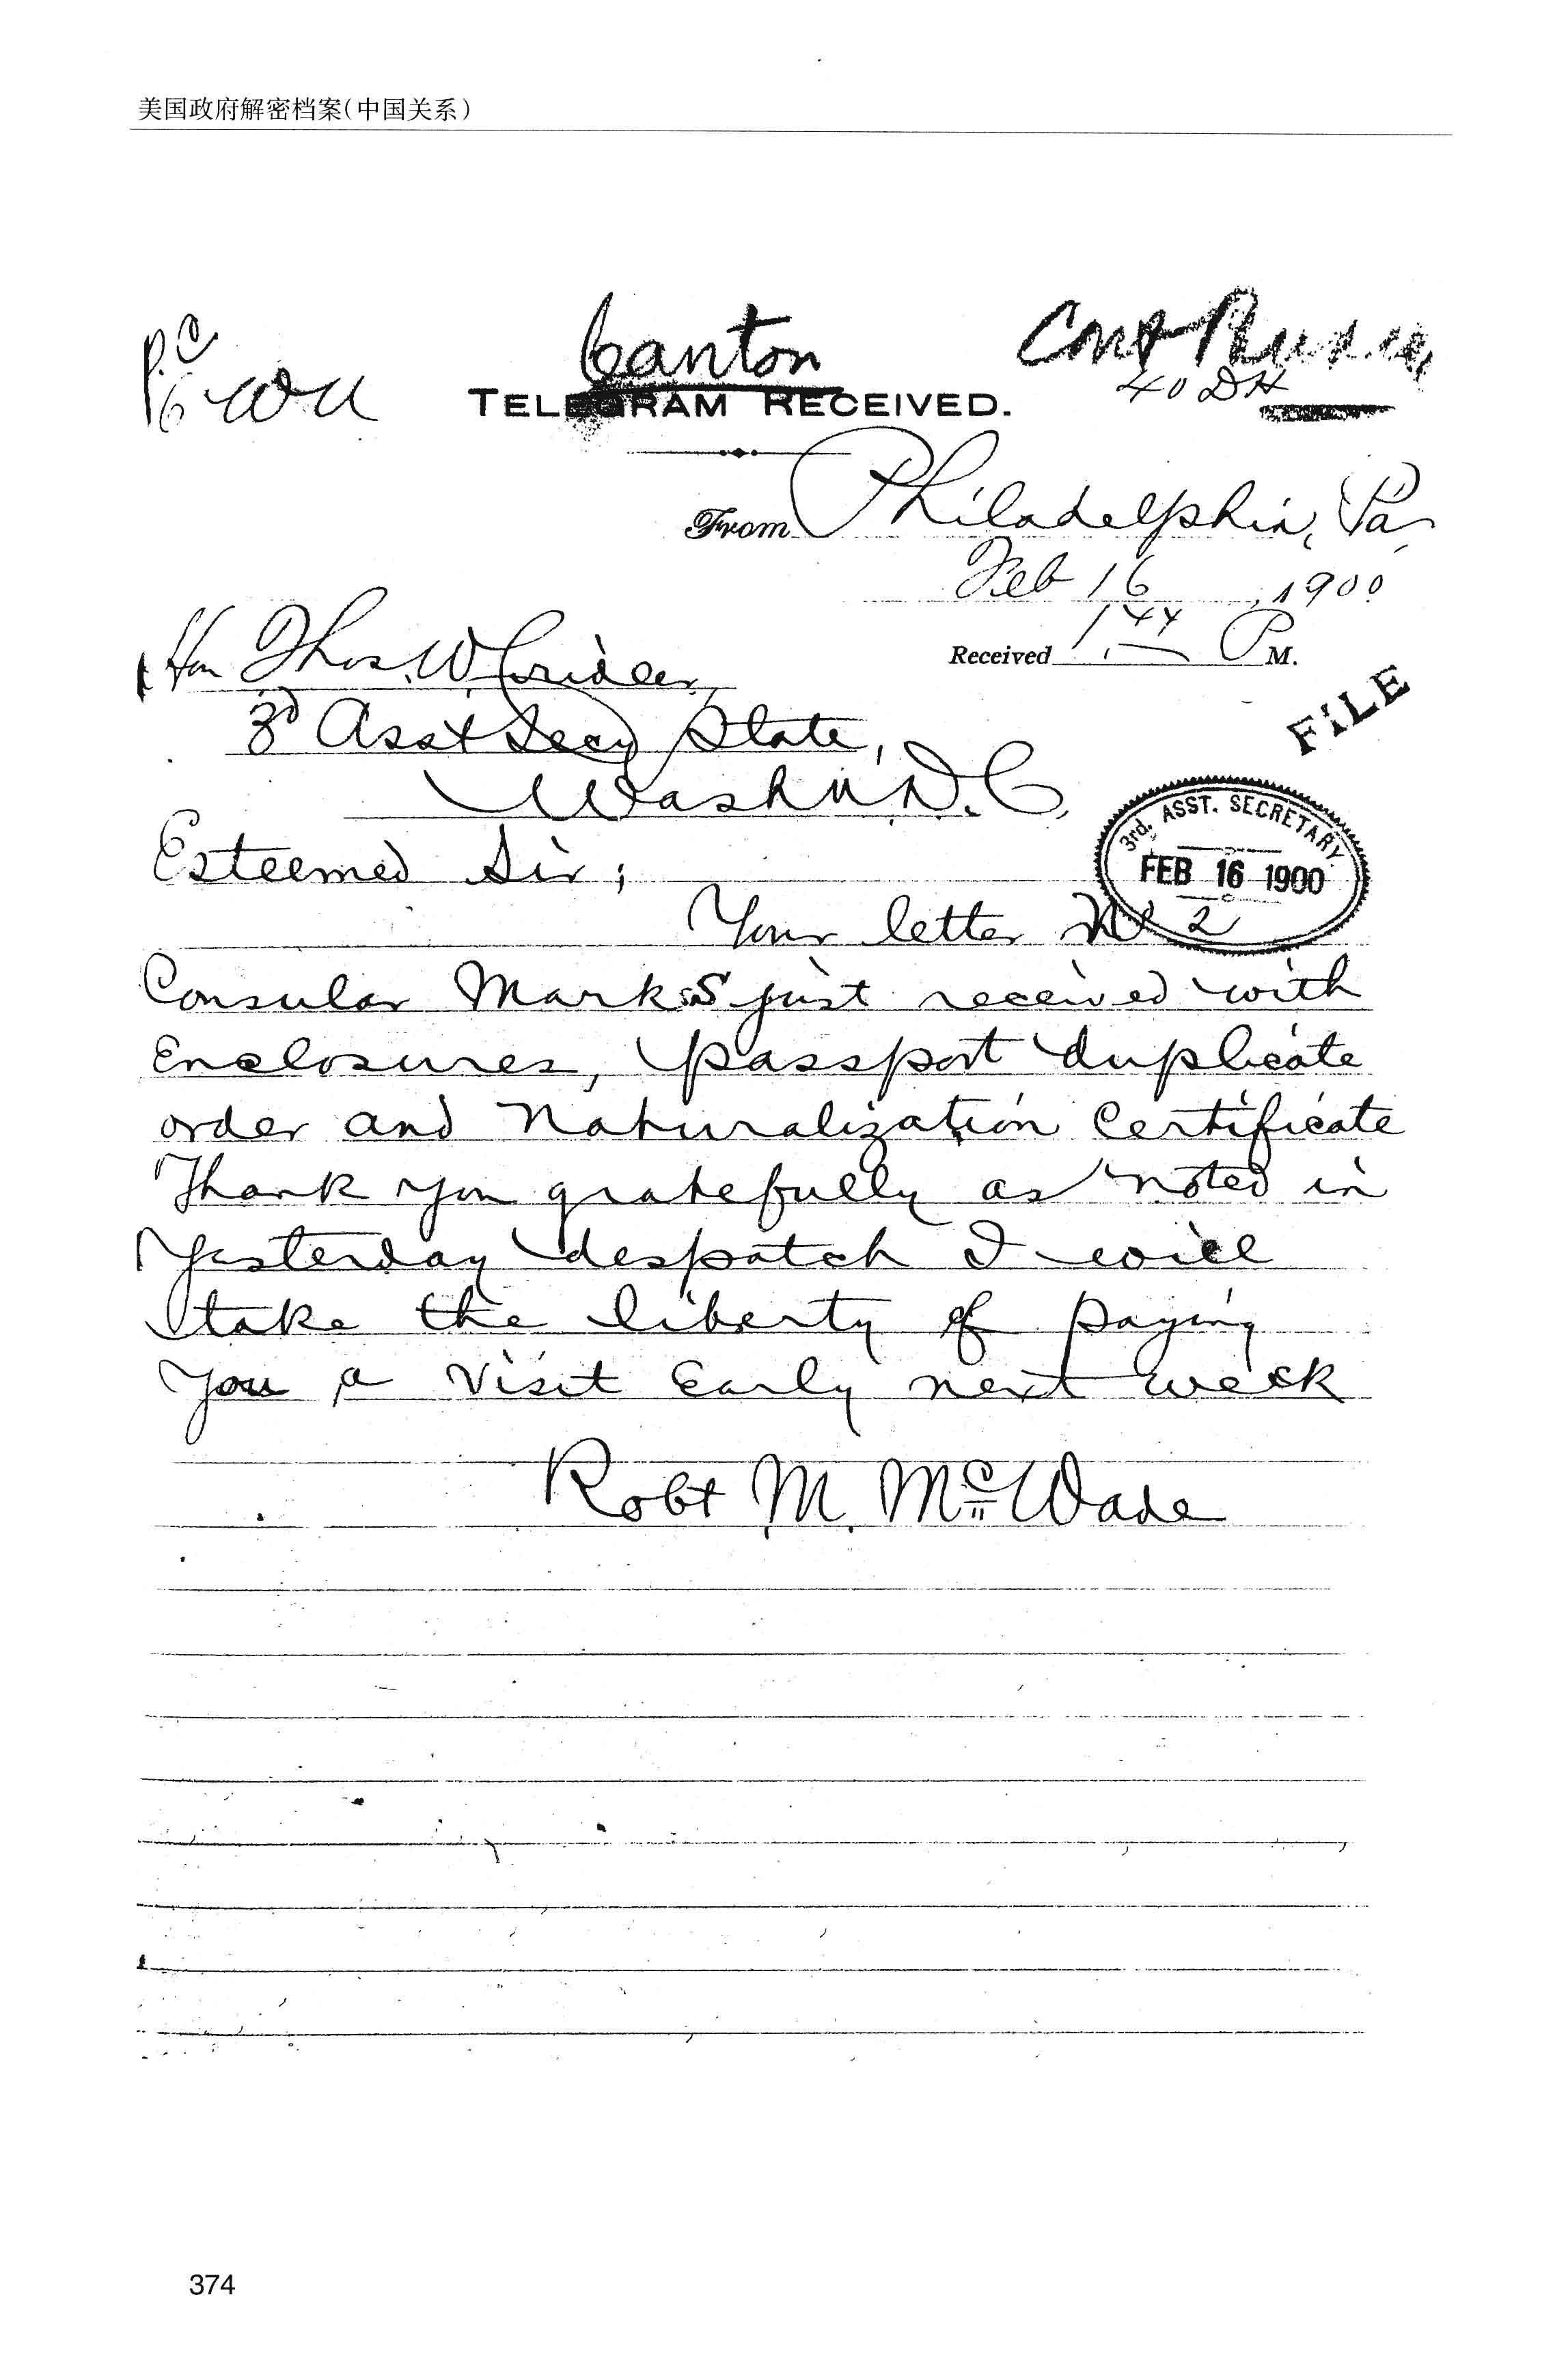 美国政府解密档案(中国关系)
Canton
40 DH
TELEGRAM RECEIVED.
From Philadelphia, Pa
Feb 16, 1900
Received 1.44 P M.
Hon Thos. W. Cridler,
3d Asst Secy State,
FILE
Washn D.C.
3rd. ASST. SECRETARY.
FEB 16 1900
Esteemed Sir;
Your letter No 2
Consular Marks just received with
Enclosures, passport duplicate
order and Naturalization Certificate
Thank you gratefully as noted in
Yesterday despatch I will
take the liberty of paying
you a visit Early next week
Robt M. McWade
374